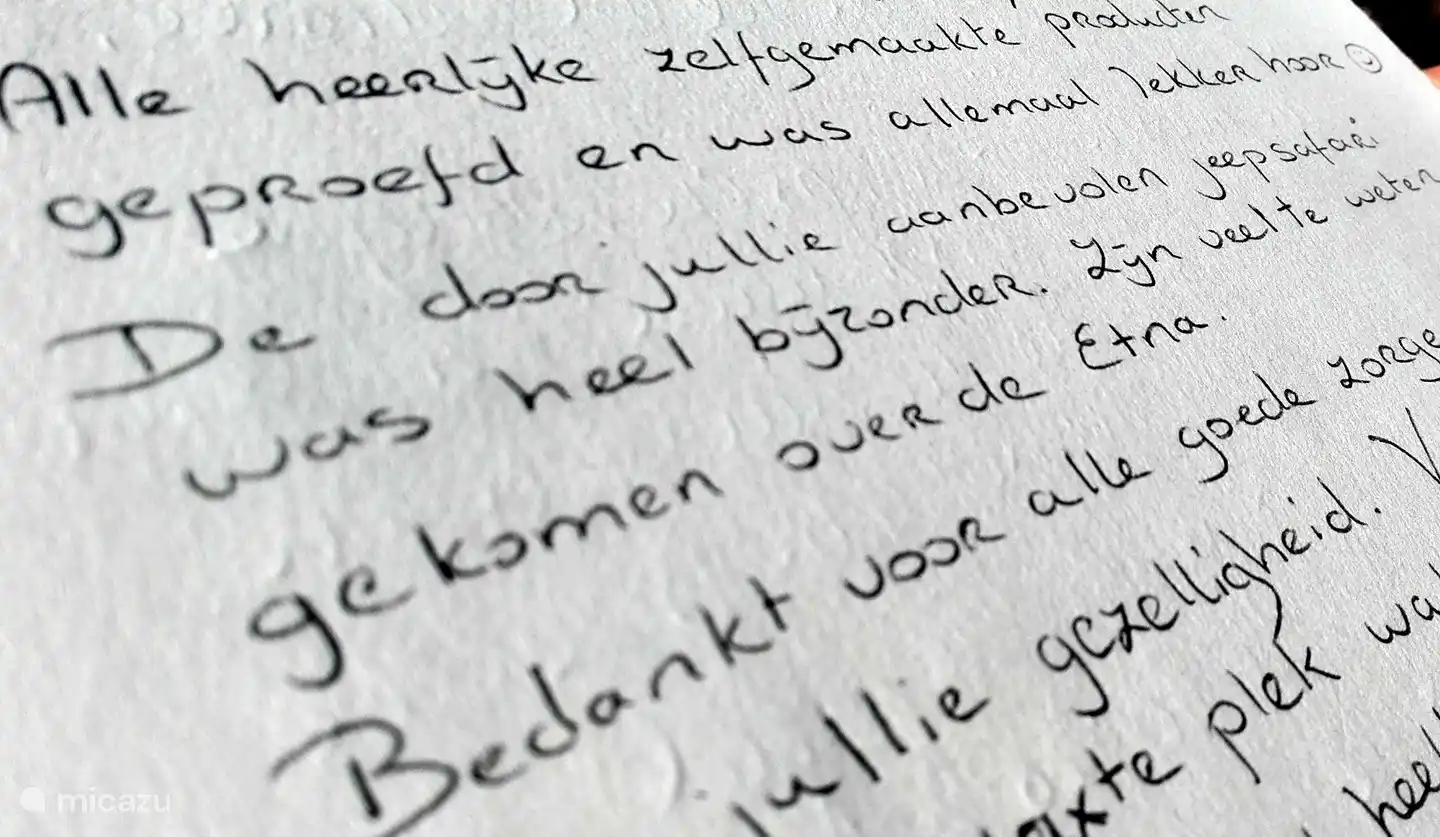 Alle heerlijke zelfgemaakte producten
geproefd en was allemaal lekker hoor ☺
De door jullie aanbevolen jeepsafari
was heel bijzonder. Zijn veel te weten
gekomen over de Etna.
Bedankt voor alle goede zorge
jullie gezelligheid. V
plek
heel
micazu